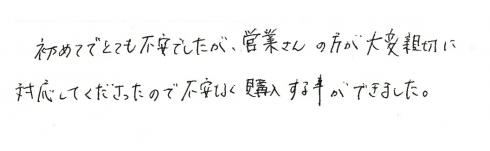 初めてでとても不安でしたが、営業さんの方が大変親切に
対応してくださったので不安なく購入する事ができました。